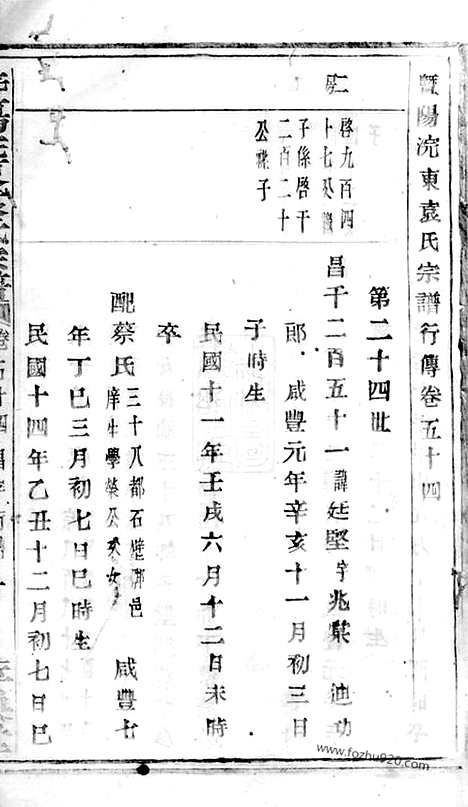 暨陽浣東袁氏宗譜行傳卷五十四
第二十四世
二房
啓九百四
十七公繼
子係啓干
二百二十
公禄子
昌千二百五十一諱廷堅字兆棠 迪功
郎咸豐元年辛亥十一月初三日
子時生
民國十一年壬戌六月十二日未時
卒
配蔡氏三十八都石壁邨邑
庠生學榮公次女 咸豐七
年丁巳三月初七日巳時生
民國十四年乙丑十二月初七日巳
www.fozhu920.com